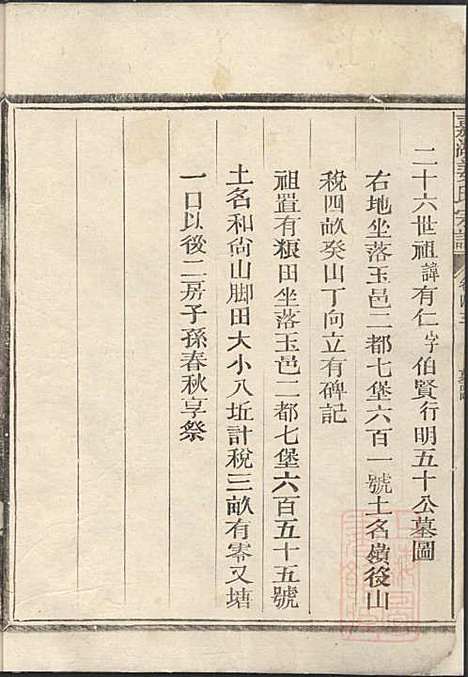 二十六世祖諱有仁字伯賢行明五十公墓圖
右地坐落玉邑二都七堡六百一號土名嶺後山
稅四畝癸山丁向立有碑記
祖置有粮田坐落玉邑二都七堡六百五十五號
土名和尙山脚田大小八坵計稅三畝有零又塘
一口以後二房子孫春秋享祭